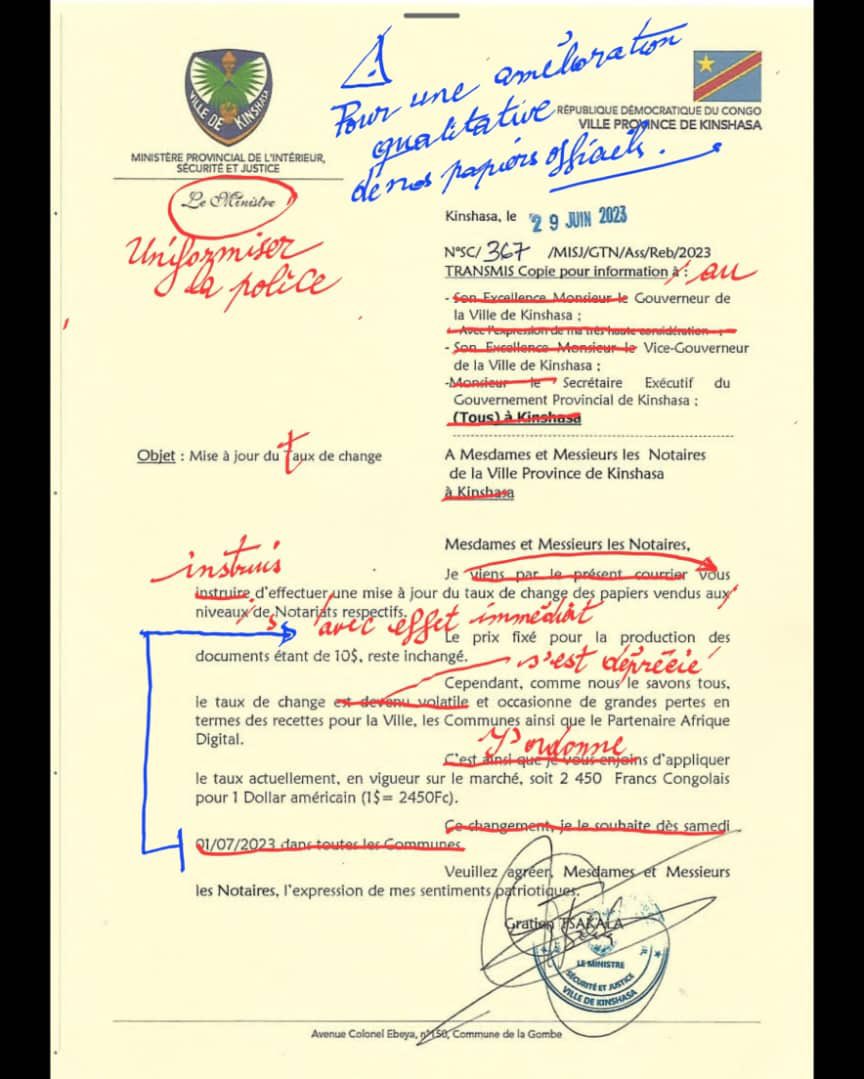 VILLE DE KINSHASA
MINISTÈRE PROVINCIAL DE L'INTÉRIEUR,
SÉCURITÉ ET JUSTICE
Le Ministre
Uniformiser
la police
Pour une amélioration
qualitative
de nos papiers officiels.
RÉPUBLIQUE DÉMOCRATIQUE DU CONGO
VILLE PROVINCE DE KINSHASA
Kinshasa, le 29 JUIN 2023
N°SC/ 367 /MISJ/GTN/Ass/Reb/2023
TRANSMIS Copie pour information à : au
- Son Excellence Monsieur le Gouverneur de
la Ville de Kinshasa ;
- Avec l'expression de ma très haute considération ;
- Son Excellence Monsieur le Vice-Gouverneur
de la Ville de Kinshasa ;
-Monsieur le Secrétaire Exécutif du
Gouvernement Provincial de Kinshasa ;
(Tous) à Kinshasa
Objet : Mise à jour du taux de change
A Mesdames et Messieurs les Notaires
de la Ville Province de Kinshasa
à Kinshasa
Mesdames et Messieurs les Notaires,
instruis
Je viens par le présent courrier vous
instruire d'effectuer une mise à jour du taux de change des papiers vendus aux
niveaux de Notariats respectifs.
s
avec effet immédiat
Le prix fixé pour la production des
documents étant de 10$, reste inchangé.
s'est déprécié
Cependant, comme nous le savons tous,
le taux de change est devenu volatile et occasionne de grandes pertes en
termes des recettes pour la Ville, les Communes ainsi que le Partenaire Afrique
Digital.
J'ordonne
C'est ainsi que je vous enjoins d'appliquer
le taux actuellement, en vigueur sur le marché, soit 2 450 Francs Congolais
pour 1 Dollar américain (1$= 2450Fc).
Ce changement, je le souhaite dès samedi
01/07/2023 dans toutes les Communes.
Veuillez agréer, Mesdames et Messieurs
les Notaires, l'expression de mes sentiments patriotiques.
Gratien TSAKALA
LE MINISTRE
SÉCURITÉ ET JUSTICE
VILLE DE KINSHASA
Avenue Colonel Ebeya, n°150, Commune de la Gombe